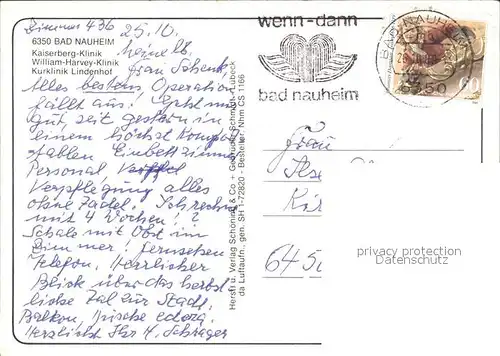 Zimmer 436 25.10.
6350 BAD NAUHEIM
Kaiserberg-Klinik
William-Harvey-Klinik
Kurklinik Lindenhof
meine lb.
Frau Schenk
Alles bestens Operation
fällt aus! Geht mir
gut, seit gestern in
einem höchst komfor
tablen Einbettzimmer
Personal
Verpflegung alles
ohne Tadel. Ich rechne
mit 4 Wochen!
Schale mit Obst im
Zimmer! Fernsehen
Telefon. Herrlicher
Blick über das herbst
liche Tal zur Stadt.
Balkon, frische
Herzlich Ihr H. Schrager
Herst. u. Verlag Schöning & Co · Gebrüder Schmidt · Lübeck
da Luftaufn.: gen. SH 1-72820 - Bestellnr. Nhm CS 1166
wenn-dann
bad nauheim
BAD NAUHEIM
6350
Frau
645
privacy protection
Datenschutz